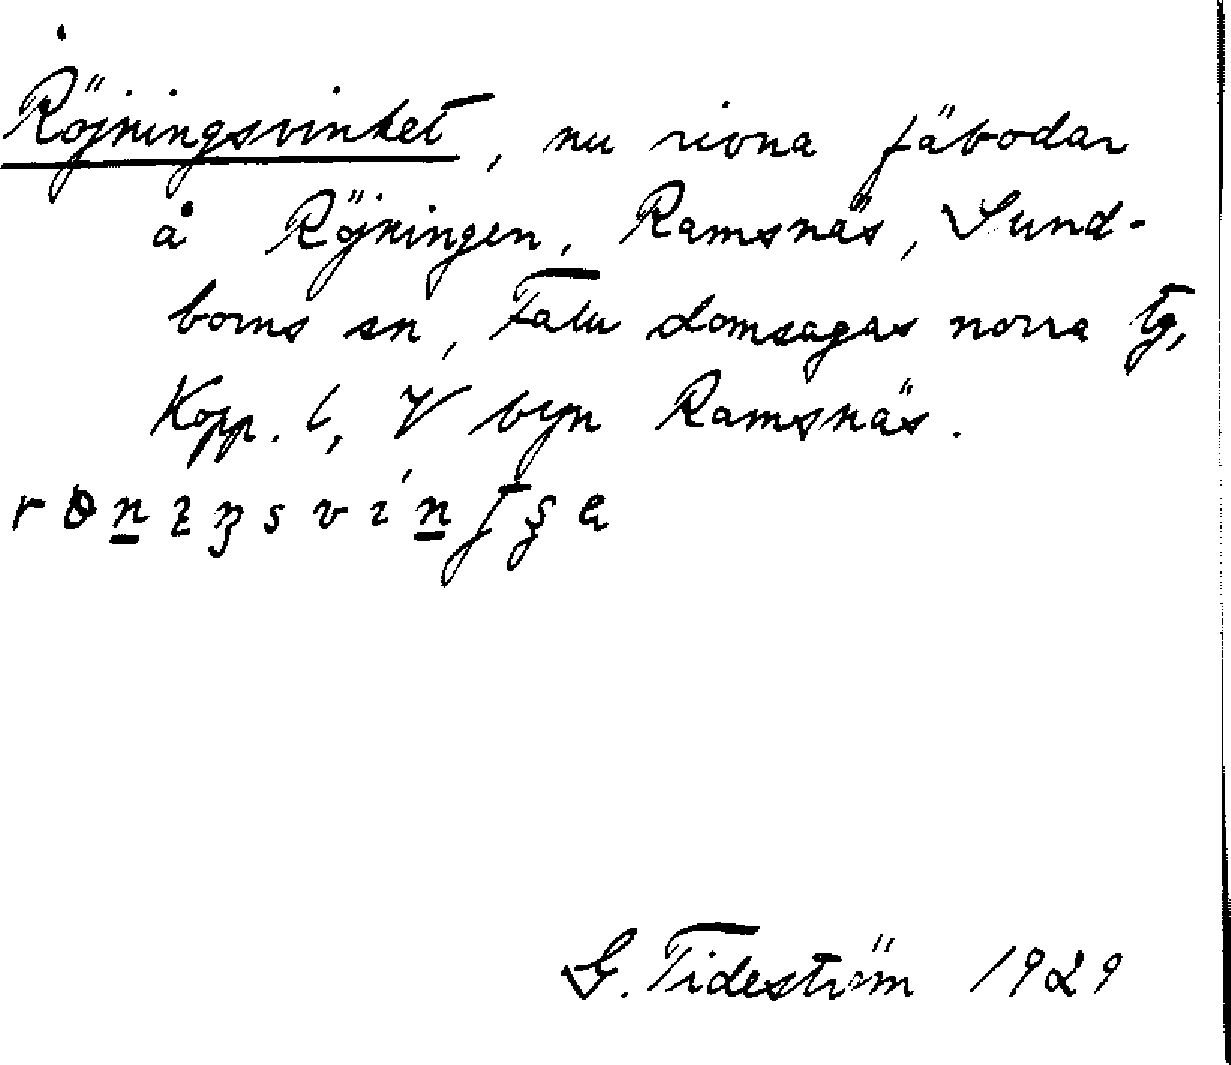 Röjningsvinket, nu rivna fäbodar
å Röjningen, Ramsnäs, Sund-
borns sn, Falu domsagas norra tg,
Kopp. l, V byn Ramsnäs.
G. Tideström 1929